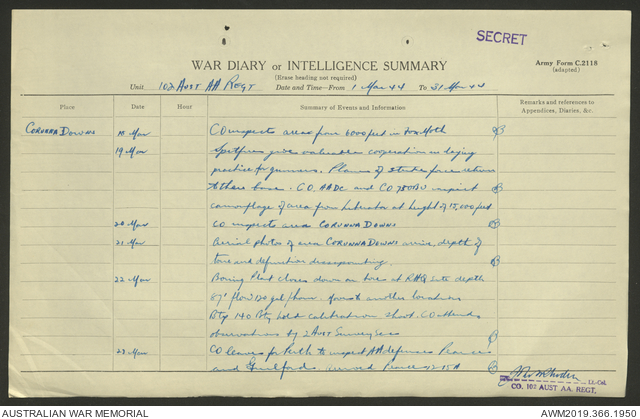 SECRET
WAR DIARY or INTELLIGENCE SUMMARY
Army Form C.2118
(adapted)
(Erase heading not required)
Unit 102 AUST AA REGT Date and Time—From 1 Mar 44 To 31 Mar 44
Place Date Hour Summary of Events and Information Remarks and references to Appendices, Diaries, &c.
CORUNNA DOWNS 18 Mar CO inspects area from 6000 feet in Fox Moth
19 Mar Spitfires give valuable cooperation in laying
practice for gunners. Planes of strike force return
to there base. CO, AADC and CO 75OBU inspect
camouflage of area from Liberator at height of 15,000 feet
20 Mar CO inspects area CORUNNA DOWNS
21 Mar Aerial photos of area CORUNNA DOWNS arrive, depth of
tone and definition disappointing.
22 Mar Boring Plant closes down on bore at RHQ site depth
87' flow 120 gal/hour. to another location
140 Bty hold calibration shoot. CO attends
observations by 2 Aust Survey Secs
23 Mar CO leaves for Perth to inspect AA defences Pearce
and Guildford. arrived Pearce
Lt-Col.
CO. 102 AUST AA. REGT.
AUSTRALIAN WAR MEMORIAL
AWM2019.366.1950